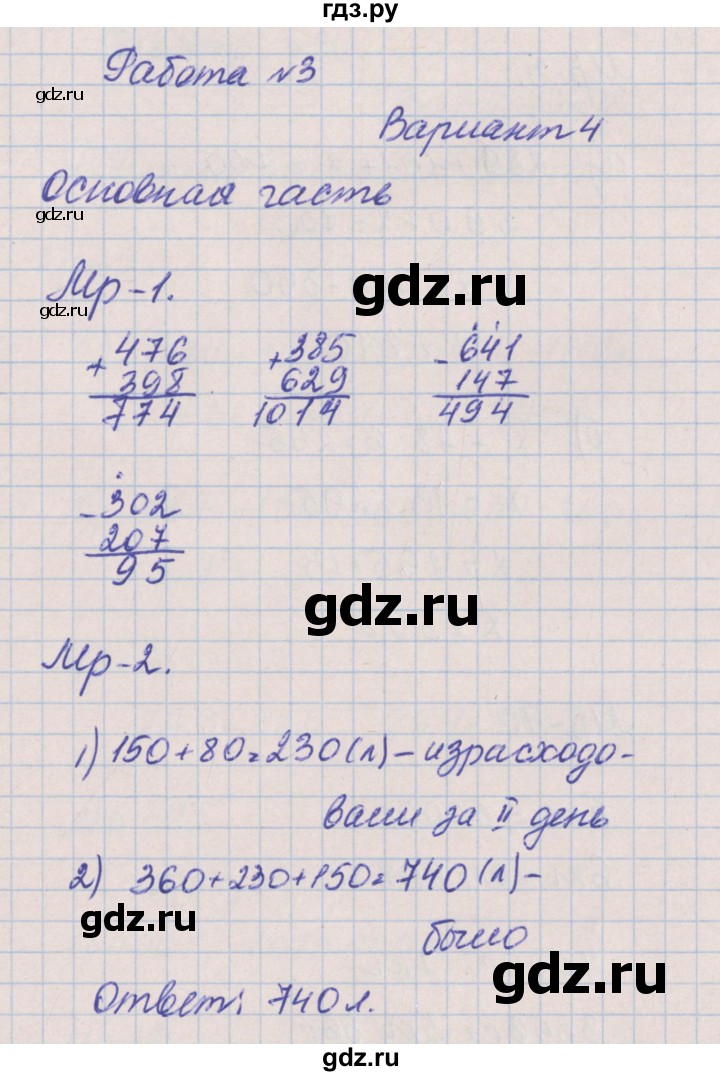 гдз.ру
Работа №3
gdz.ru
Вариант 4
Основная часть
gdz.ru
Мр-1.
gdz.ru
gdz.ru
+ 476 + 385 - 641
398 629 147
774 1014 494
- 302
207
95
gdz.ru
Мр-2.
1) 150+80=230(л) – израсходо-
вали за II день
2) 360+230+150=740(л) –
gdz.ru
было
gdz.ru
Ответ: 740л.
gdz.ru